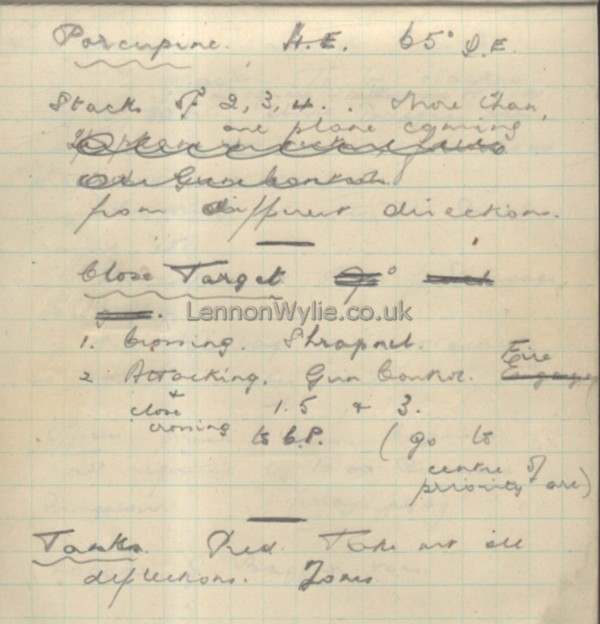 Porcupine. H.E. 65° Q.E.
Stacks of 2, 3, 4. . More than
one plane coming
from different directions.
Close Target
LennonWylie.co.uk
1. Crossing. Shrapnel.
2 Attacking. Gun Control. Fire
+
close 1.5 & 3.
crossing to G.P. (go to
centre of
priority arc)
Tanks. Pred. Take out all
deflections.